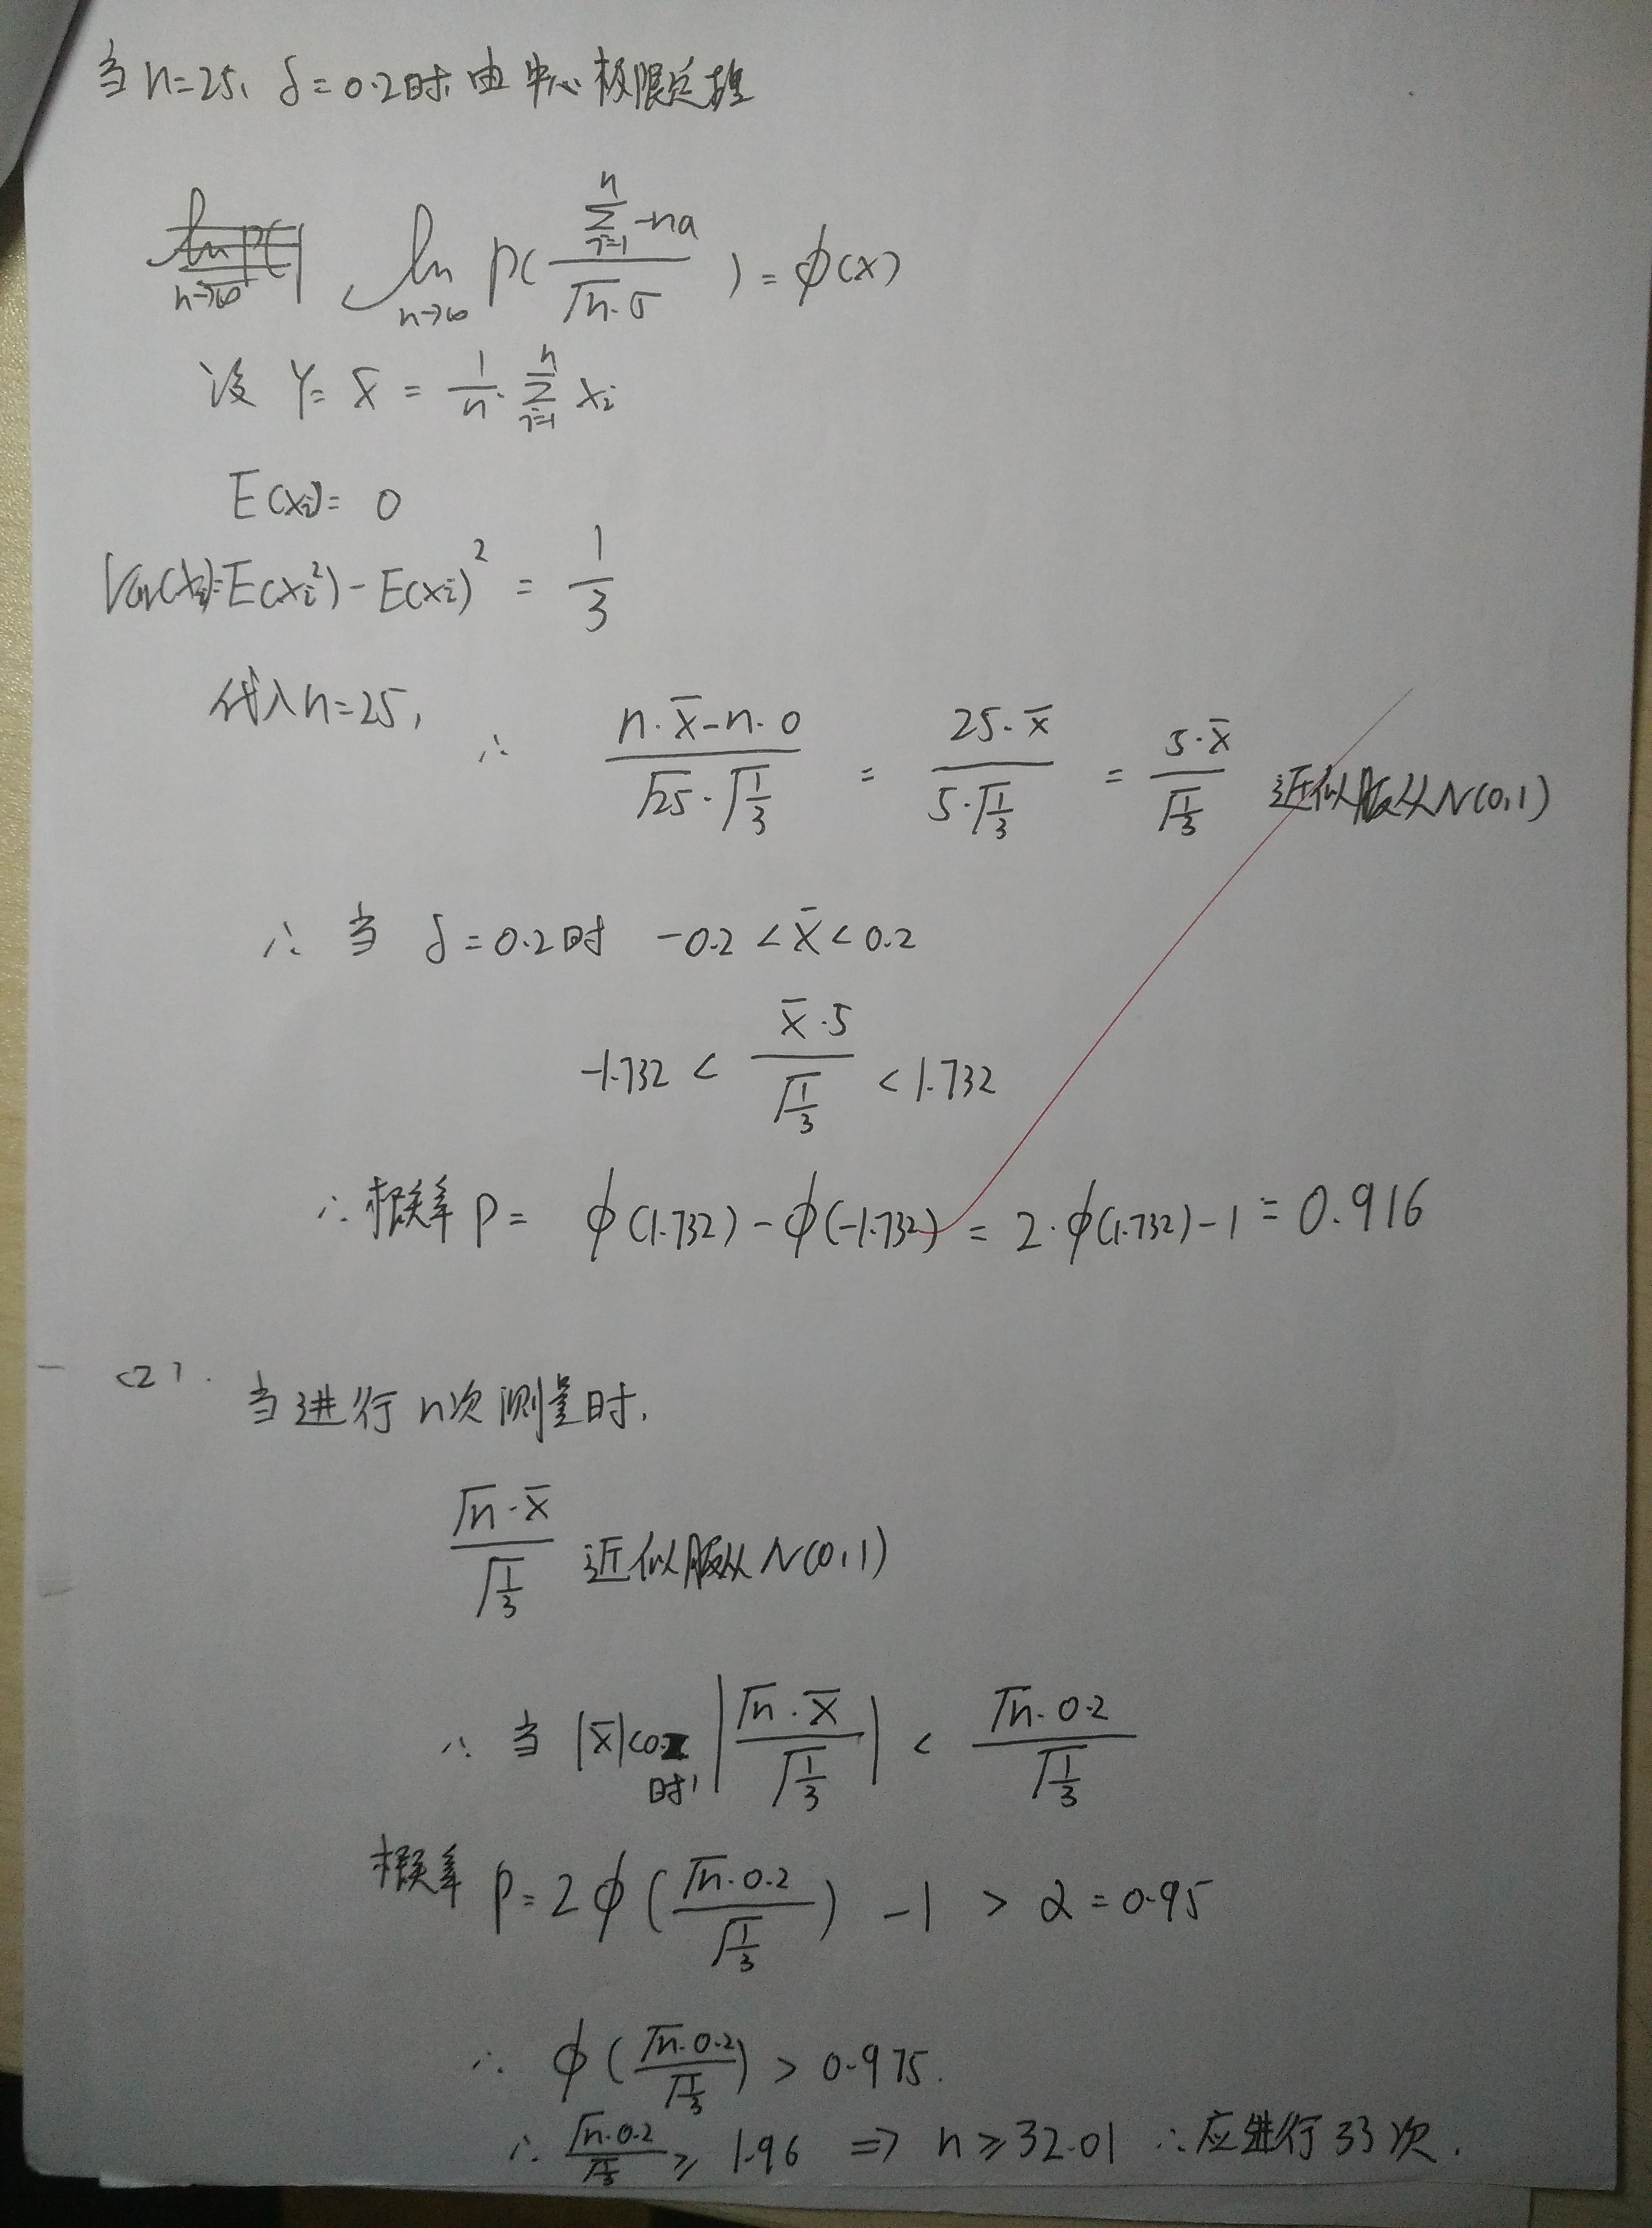 当 n=25, δ=0.2时, 由中心极限定理
lim n→∞ P( (∑ i=1 n -na)/(√n·σ) ) = φ(x)
设 Y= x̄ = 1/n · ∑ i=1 n xi
E(xi)= 0
Var(xi)=E(xi²)-E(xi)² = 1/3
代入n=25, ∴ (n·x̄-n·0)/(√25·√(1/3)) = (25·x̄)/(5·√(1/3)) = (5·x̄)/√(1/3) 近似服从N(0,1)
∴ 当 δ=0.2时 -0.2<x̄<0.2
-1.732 < (x̄·5)/√(1/3) < 1.732
∴概率 P= φ(1.732)-φ(-1.732) = 2·φ(1.732)-1 = 0.916
(2).
当进行n次测量时,
(√n·x̄)/√(1/3) 近似服从N(0,1)
∴ 当 |x̄|<0.2时, |(√n·x̄)/√(1/3)| < (√n·0.2)/√(1/3)
概率 P=2φ((√n·0.2)/√(1/3)) -1 > α=0.95
∴ φ((√n·0.2)/√(1/3)) > 0.975.
∴ (√n·0.2)/√(1/3) ≥ 1.96 => n≥32.01 ∴应进行33次.